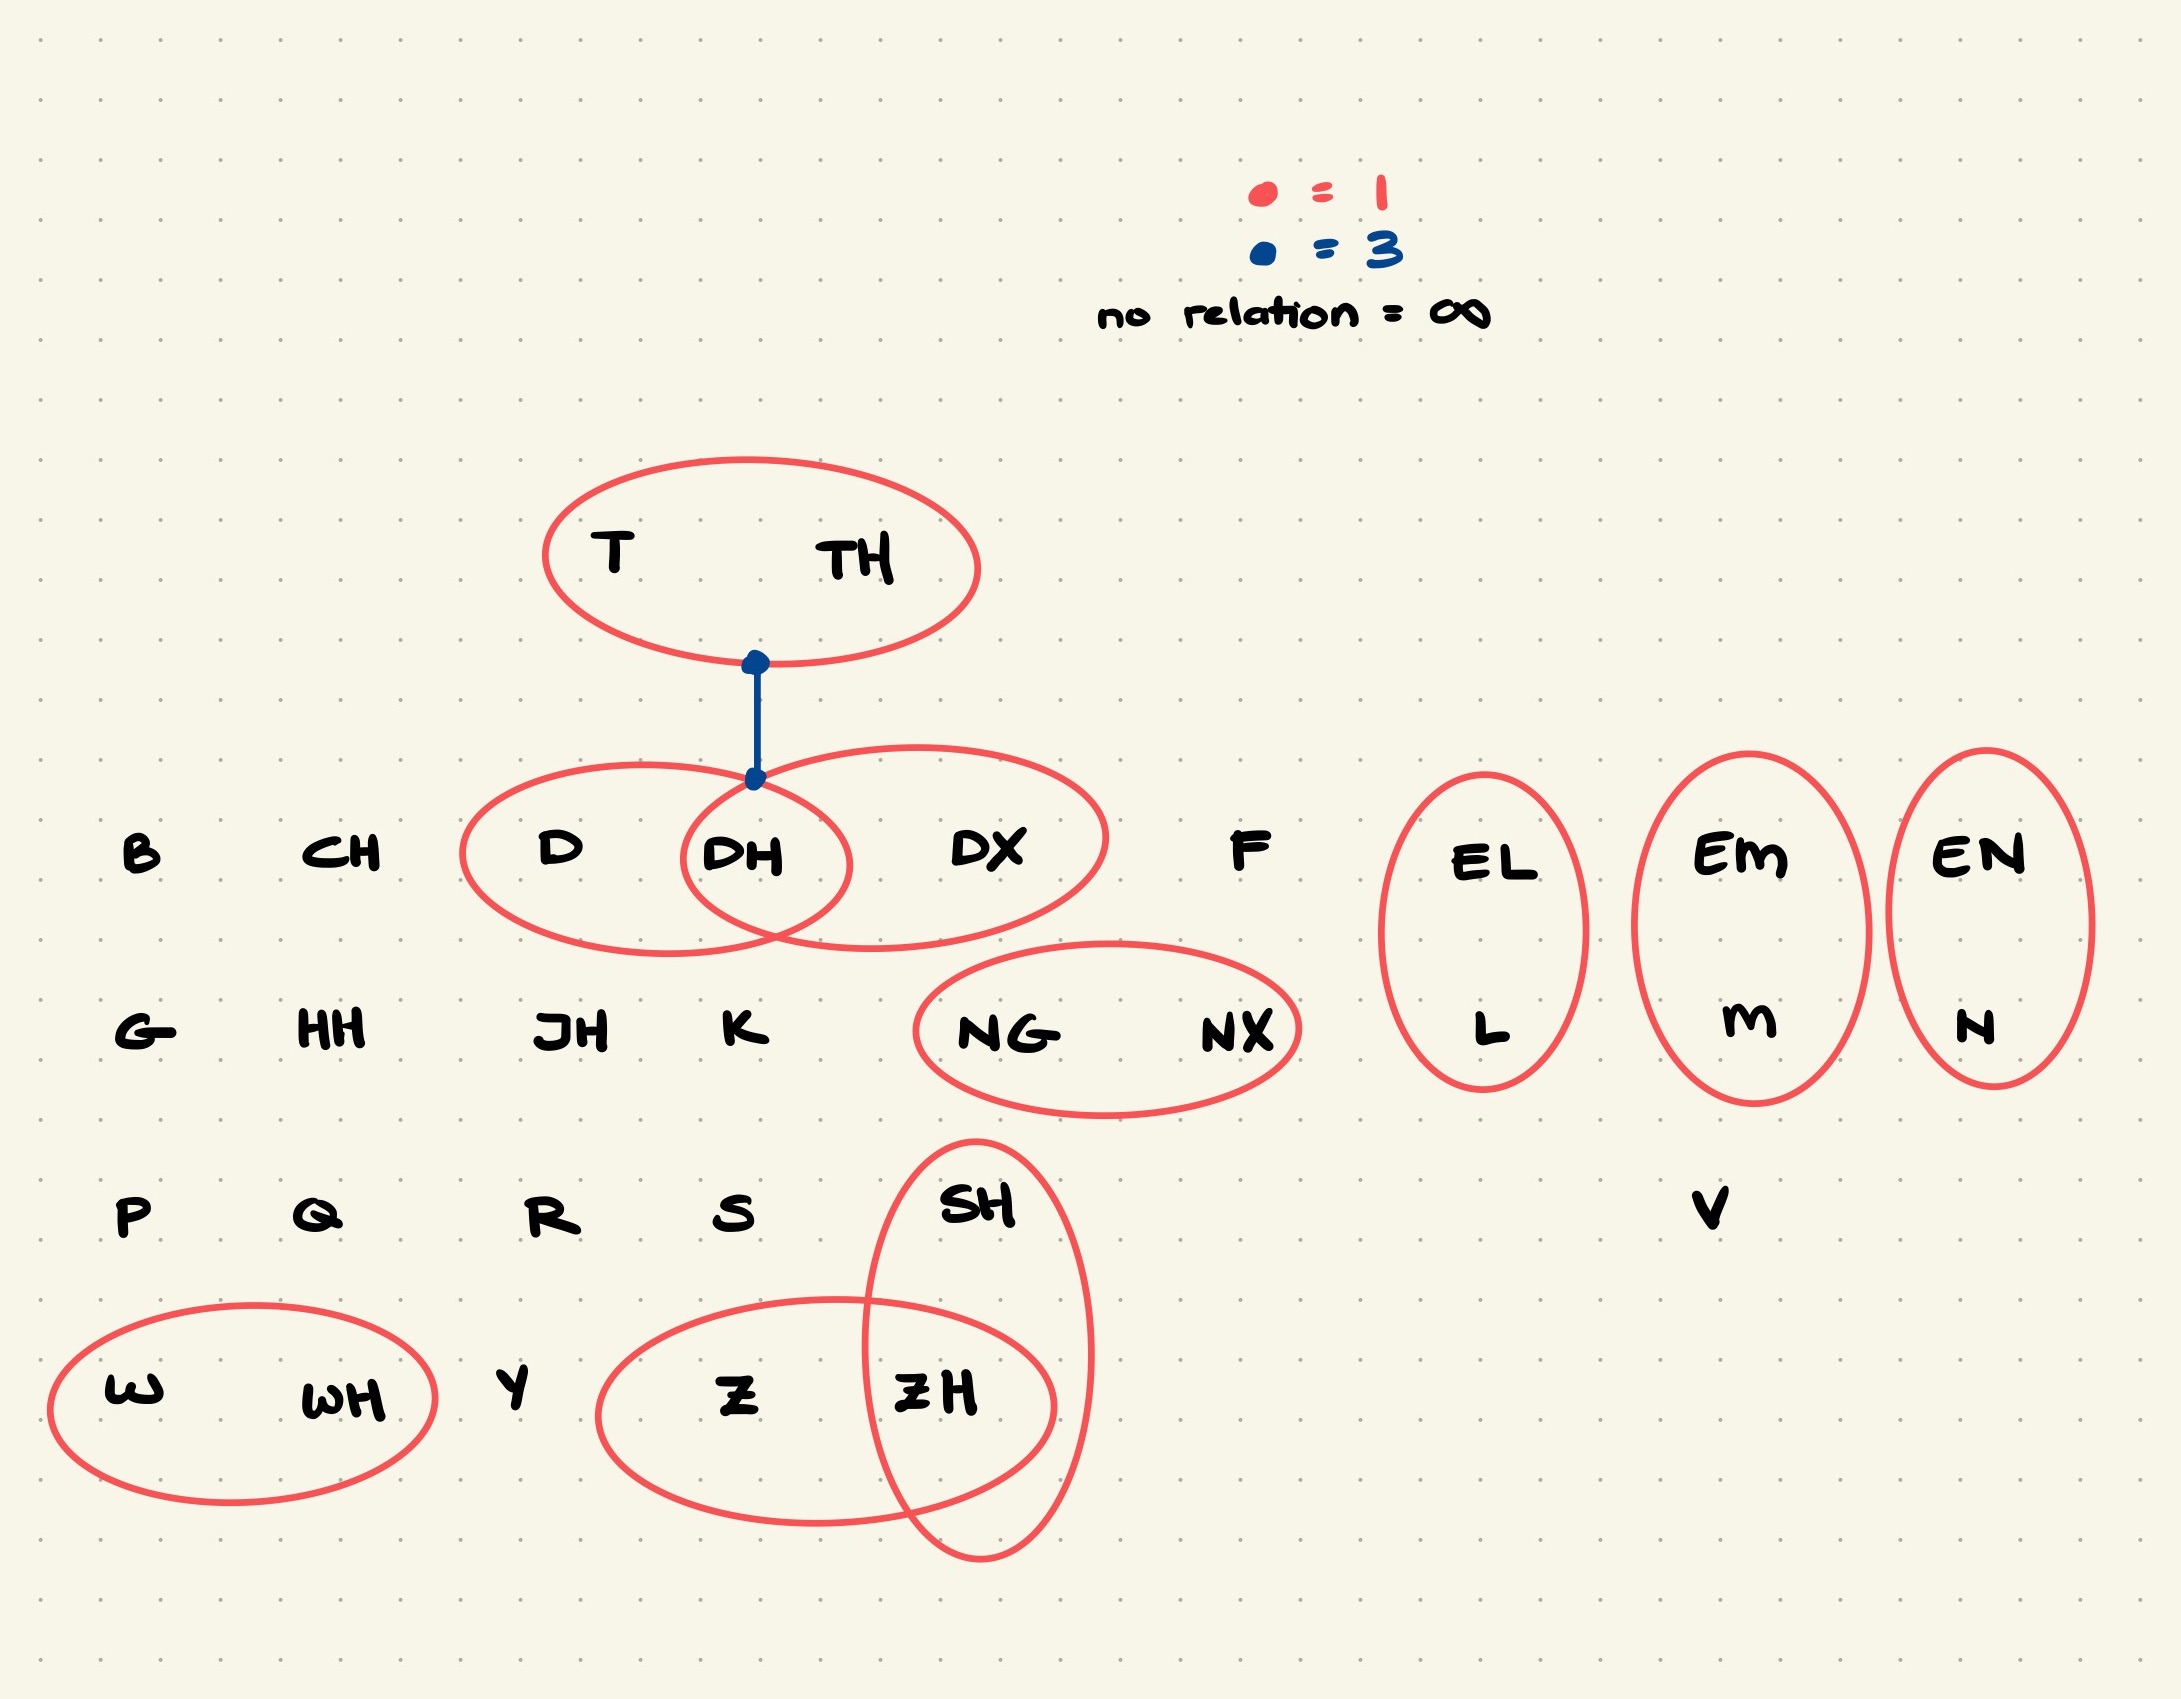 = 1
= 3
no relation = ∞
T TH
B CH D DH DX F EL Em EN
G HH JH K NG NX L m N
P Q R S SH V
W WH Y Z ZH